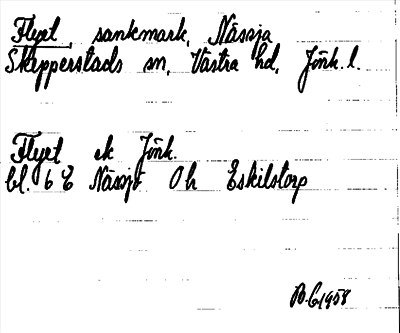 Flyet, sankmark, Nässja
Skepperstads sn, Västra hd, Jönk. l.
Flyet ek Jönk.
bl. 6 E Nässjö Oh Eskilstorp
B.G 1958